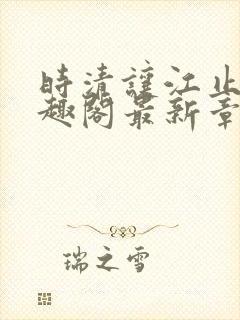 時清讓江止
趣閣最新章
瑞之雪